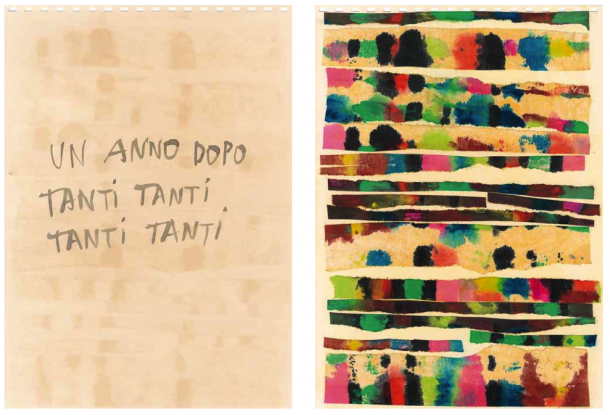 UN ANNO DOPO
TANTi TANTi
TANTi TANTi